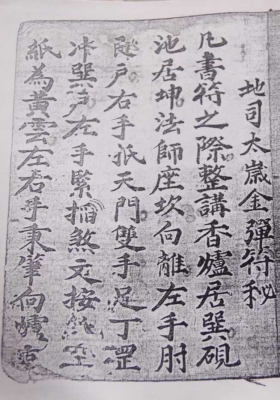 地司太歲金彈符秘
凡書符之際整講香爐居巽硯
池居坤法師座坎向離左手肘
戶右手抵天門雙手足丁罡
冲巽戶左手緊掐煞文接純空
紙為黃雲左右手秉筆向爐